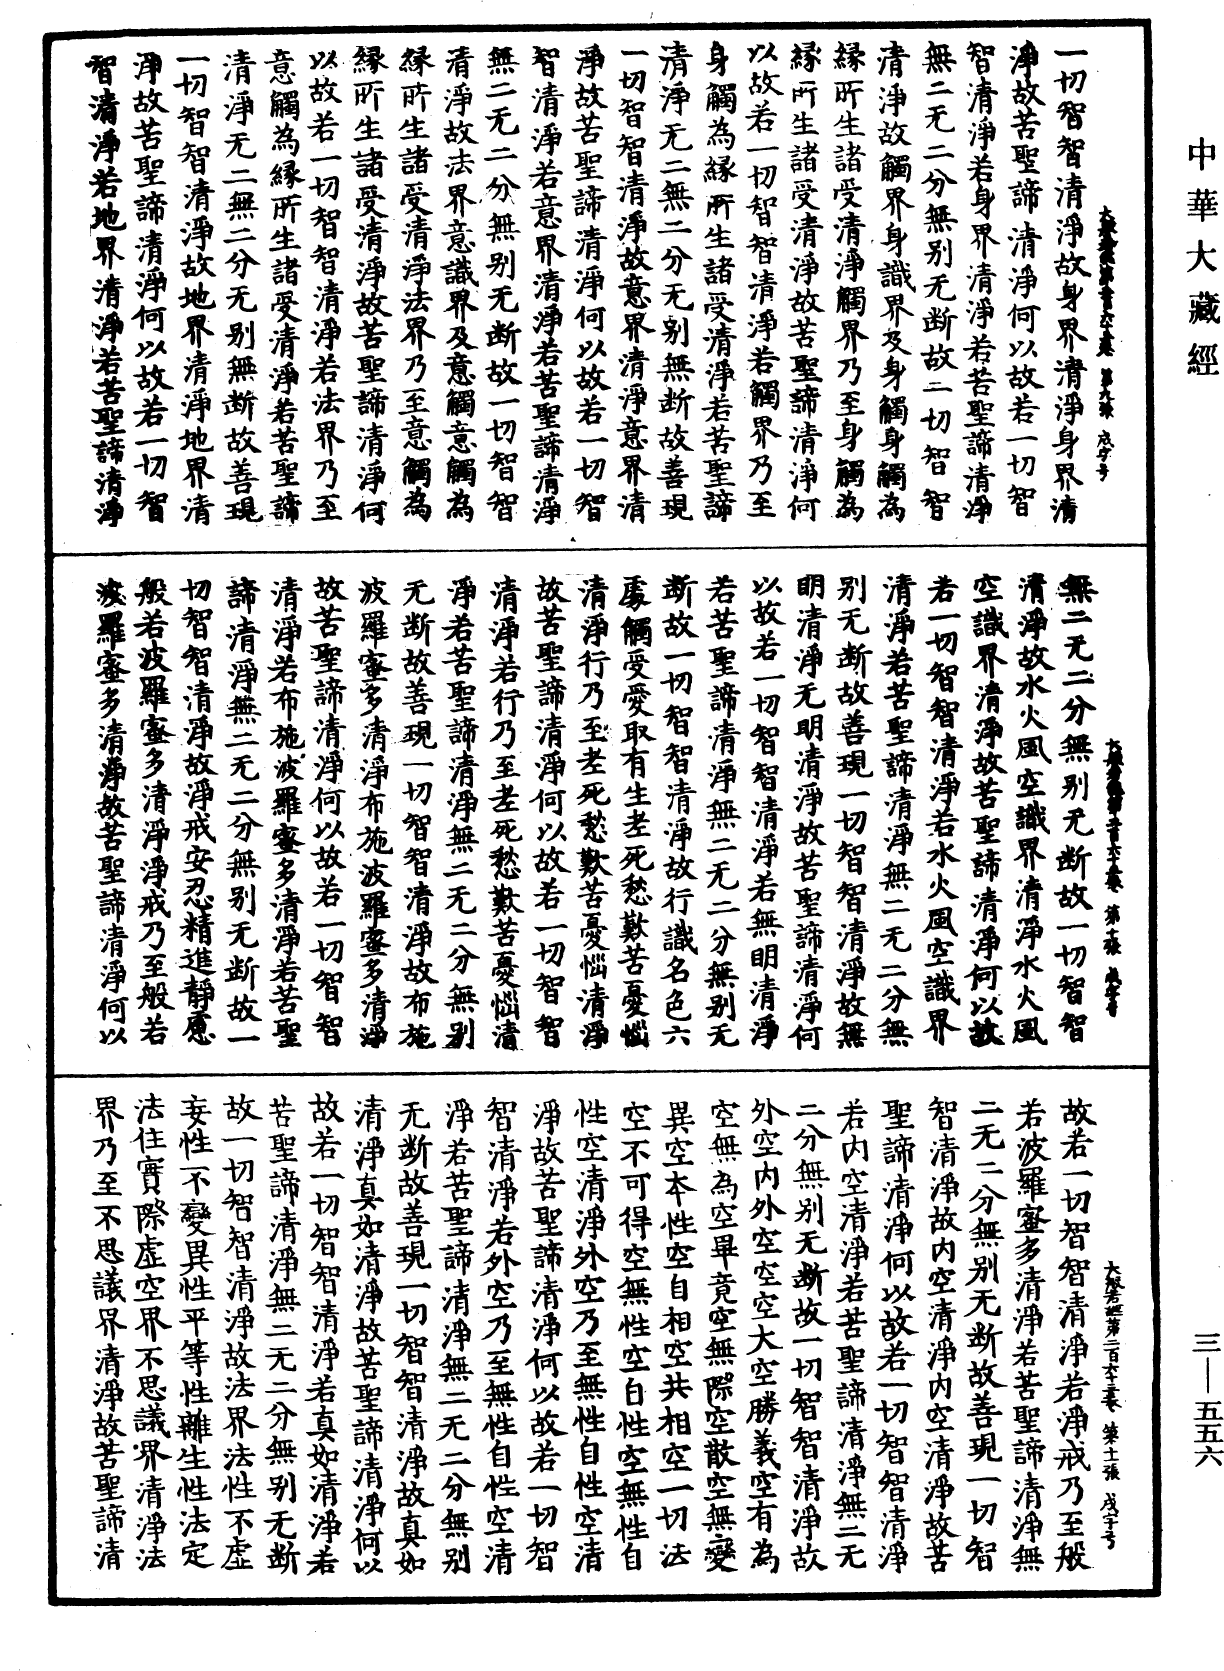 中華大藏經
一切智智清淨故身界清淨身界清
淨故苦聖諦清淨何以故若一切智
智清淨若身界清淨若苦聖諦清淨
無二无二分無别无断故一切智智
清淨故觸界身識界及身觸身觸為
緣所生諸受清淨觸界乃至身觸為
緣所生諸受清淨故苦聖諦清淨何
以故若一切智智清淨若觸界乃至
身觸為緣所生諸受清淨若苦聖諦
清淨无二無二分无别無断故善現
一切智智清淨故意界清淨意界清
淨故苦聖諦清淨何以故若一切智
智清淨若意界清淨若苦聖諦清淨
無二无二分無别无断故一切智智
清淨故法界意識界及意觸意觸為
緣所生諸受清淨法界乃至意觸為
緣所生諸受清淨故苦聖諦清淨何
以故若一切智智清淨若法界乃至
意觸為緣所生諸受清淨若苦聖諦
清淨无二無二分无别無断故善現
一切智智清淨故地界清淨地界清
淨故苦聖諦清淨何以故若一切智
智清淨若地界清淨若苦聖諦清淨
無二无二分無别无断故一切智智
清淨故水火風空識界清淨水火風
空識界清淨故苦聖諦清淨何以故
若一切智智清淨若水火風空識界
清淨若苦聖諦清淨無二无二分無
别无断故善現一切智智清淨故無
明清淨无明清淨故苦聖諦清淨何
以故若一切智智清淨若無明清淨
若苦聖諦清淨無二无二分無别无
断故一切智智清淨故行識名色六
處觸受愛取有生老死愁歎苦憂惱
清淨行乃至老死愁歎苦憂惱清淨
故苦聖諦清淨何以故若一切智智
清淨若行乃至老死愁歎苦憂惱清
淨若苦聖諦清淨無二无二分無别
无断故善現一切智智清淨故布施
波羅蜜多清淨布施波羅蜜多清淨
故苦聖諦清淨何以故若一切智智
清淨若布施波羅蜜多清淨若苦聖
諦清淨無二无二分無别无断故一
切智智清淨故淨戒安忍精進靜慮
般若波羅蜜多清淨淨戒乃至般若
波羅蜜多清淨故苦聖諦清淨何以
大般若經第二百六十三卷 第十一張 咸字号
故若一切智智清淨若淨戒乃至般
若波羅蜜多清淨若苦聖諦清淨無
二无二分無别无断故善現一切智
智清淨故内空清淨内空清淨故苦
聖諦清淨何以故若一切智智清淨
若内空清淨若苦聖諦清淨無二无
二分無别无断故一切智智清淨故
外空内外空空空大空勝義空有為
空無為空畢竟空無際空散空無變
異空本性空自相空共相空一切法
空不可得空無性空自性空無性自
性空清淨外空乃至無性自性空清
淨故苦聖諦清淨何以故若一切智
智清淨若外空乃至無性自性空清
淨若苦聖諦清淨無二无二分無别
无断故善現一切智智清淨故真如
清淨真如清淨故苦聖諦清淨何以
故若一切智智清淨若真如清淨若
苦聖諦清淨無二无二分無别无断
故一切智智清淨故法界法性不虚
妄性不變異性平等性離生性法定
法住實際虚空界不思議界清淨法
界乃至不思議界清淨故苦聖諦清
三—五五六